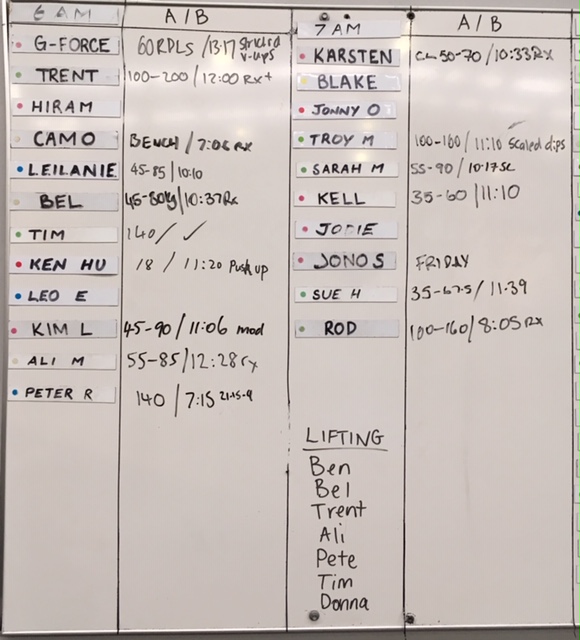 6 AM A/B
G-FORCE 60RDLS /13:17 v-ups
TRENT 100-200 / 12:00 Rx+
HIRAM
CAMO BENCH / 7:06 Rx
LEILANIE 45-85 / 10:10
BEL 45-80kg / 10:37Rx
TIM 140 / ✓
KEN HU 18 / 11:20 Push up
LEO E
KIM L 45-90 / 11:06 mod
ALI M 55-85 / 12:28 rx
PETER R 140 / 7:15 21-15-9
7 AM A/B
KARSTEN 50-70 / 10:33Rx
BLAKE
JONNY O
TROY M 100-160 / 11:10 Scaled dips
SARAH M 55-90 / 10:17 SC
KELL 35-60 / 11:10
JODIE
JONO S FRIDAY
SUE H 35-67.5 / 11:39
ROD 100-160 / 8:05 Rx
LIFTING
Ben
Bel
Trent
Ali
Pete
Tim
Donna